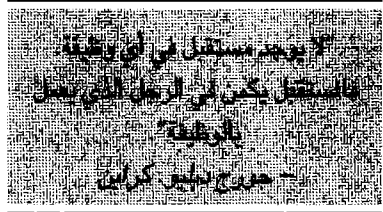 "لا يوجد مستقبل في أي وظيفة.
فالمستقبل يكمن في الرجل الذي يعمل
بالوظيفة"
– جورج دبليو. كراين